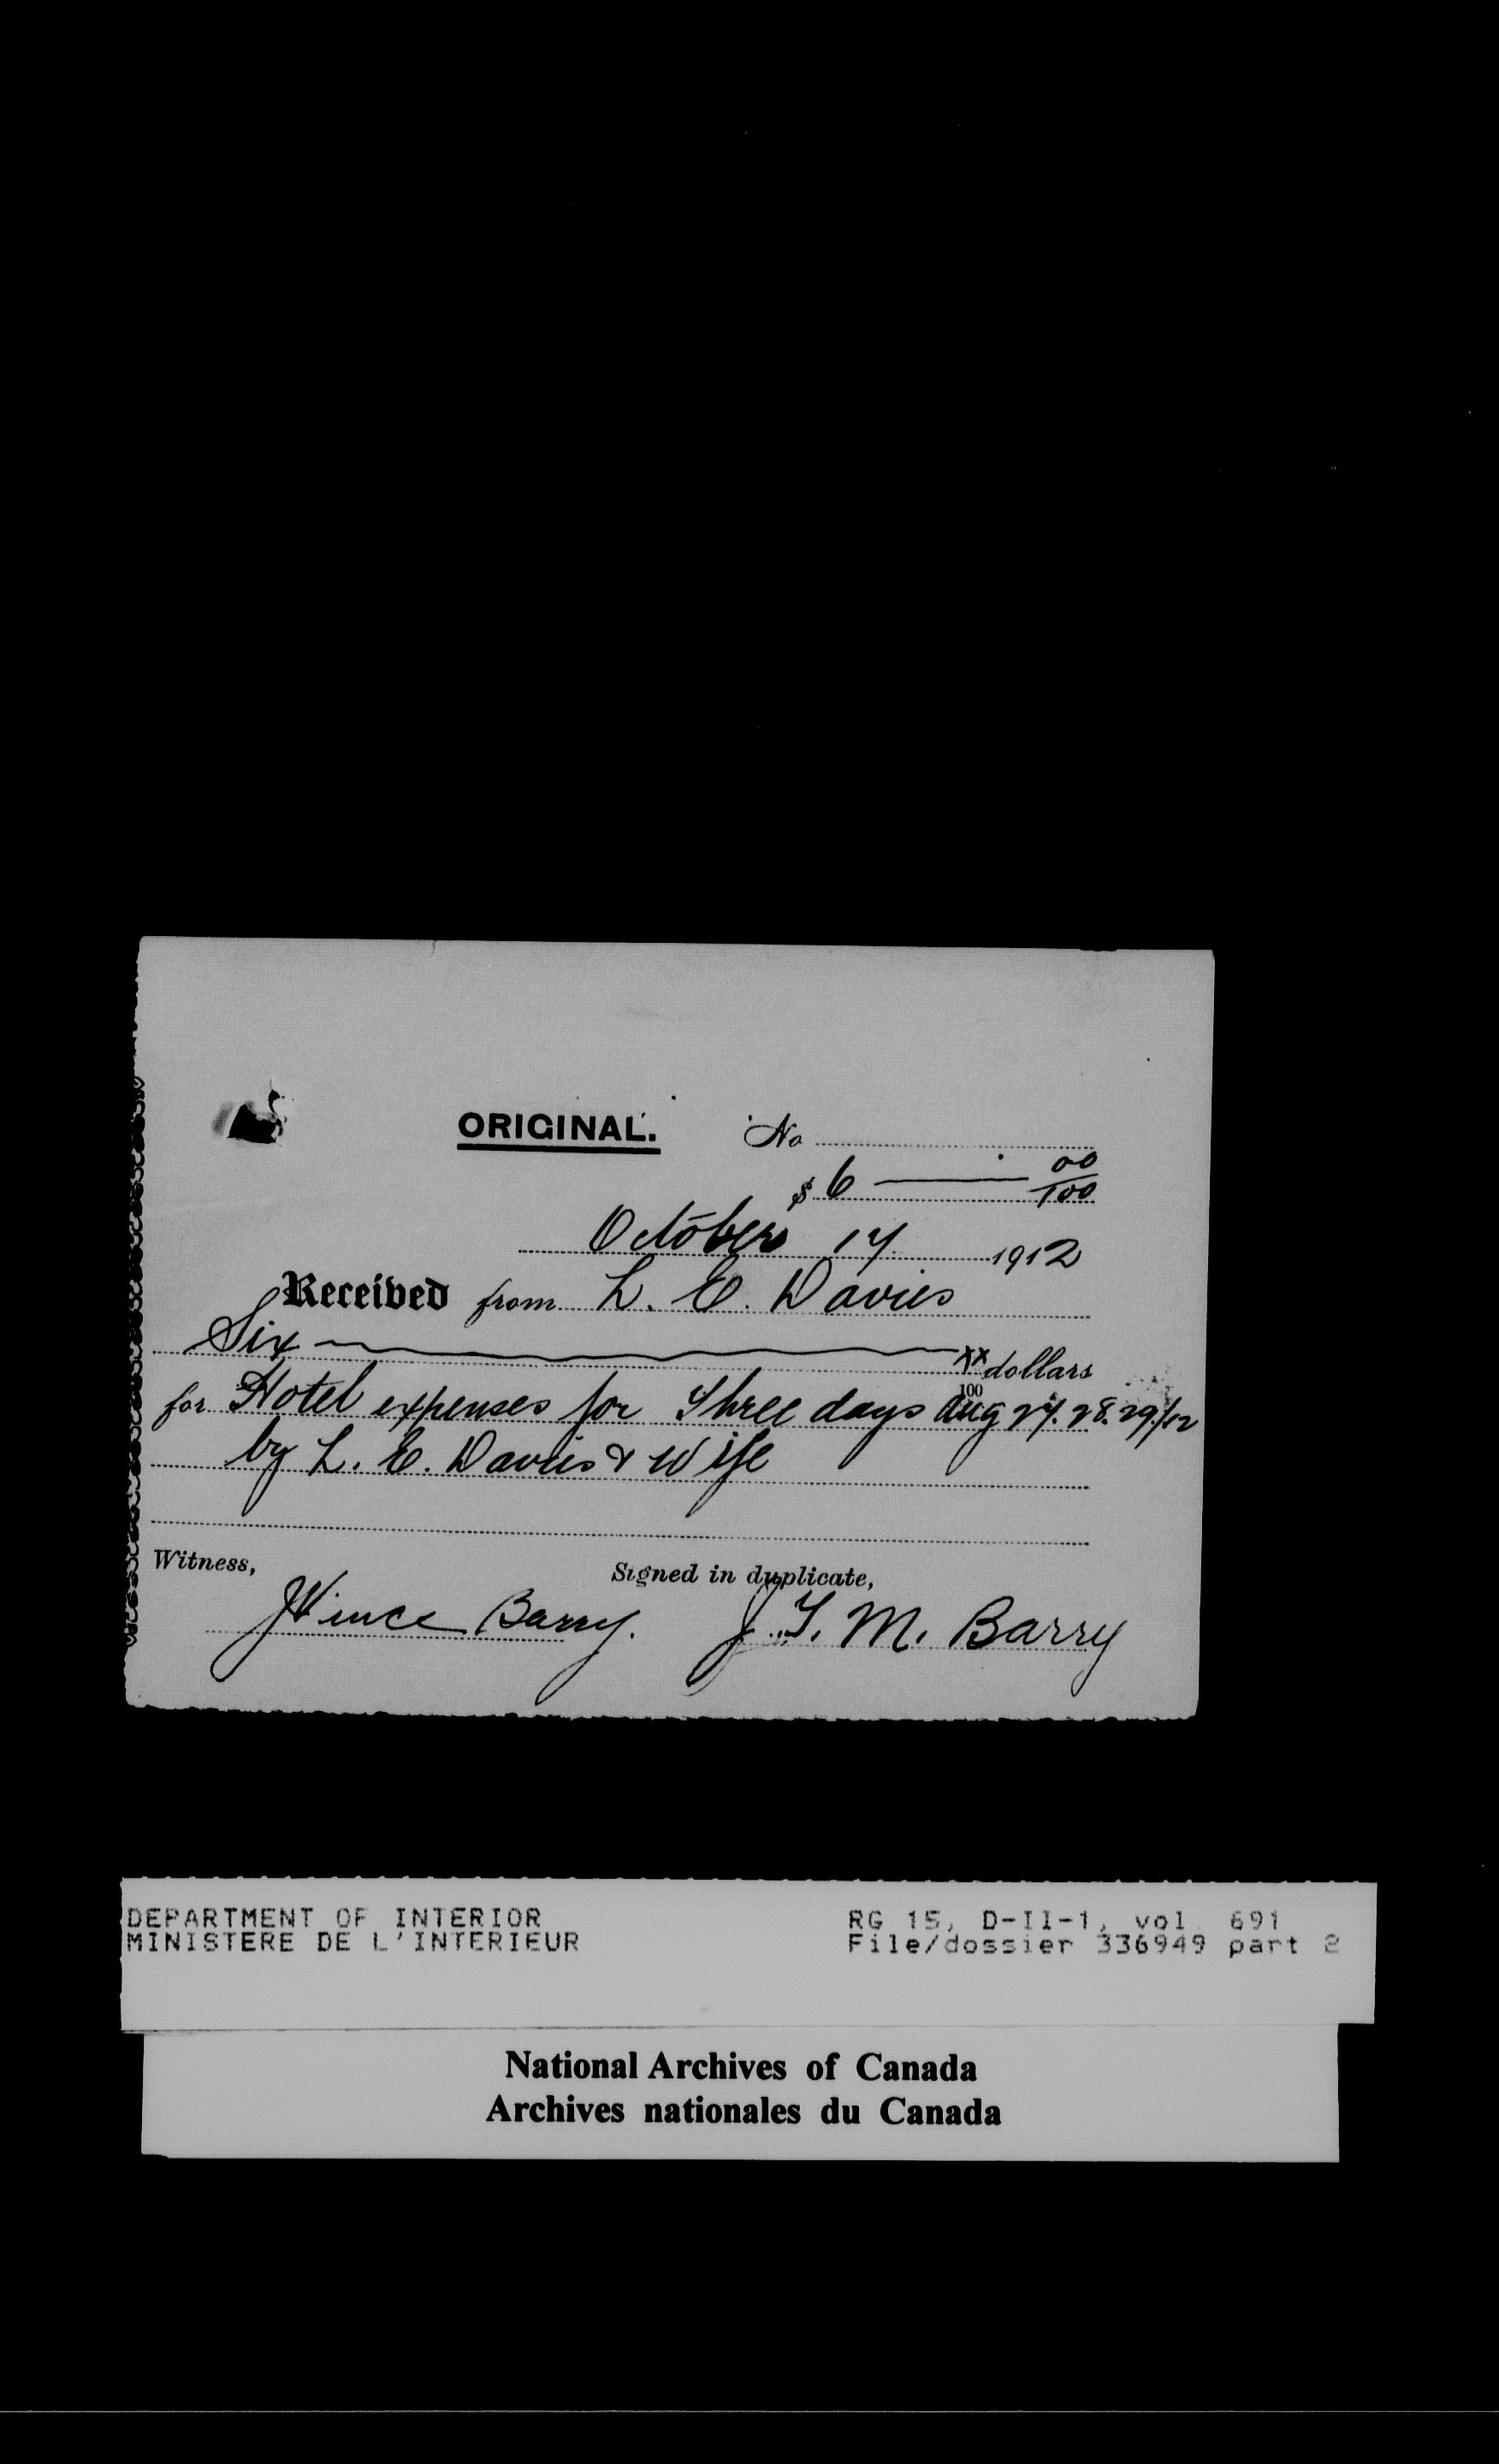 ORIGINAL. No
$ 6 — 00/100
October 17 1912
Received from L. E. Davies
Six xx/100 dollars
for Hotel expenses for Three days Aug 27. 28. 29/12
by L. E. Davies & Wife
Witness, Signed in duplicate,
JVince Barry. J. T. M. Barry
DEPARTMENT OF INTERIOR RG 15, D-II-1, vol. 691
MINISTERE DE L'INTERIEUR File/dossier 336949 part 2
National Archives of Canada
Archives nationales du Canada